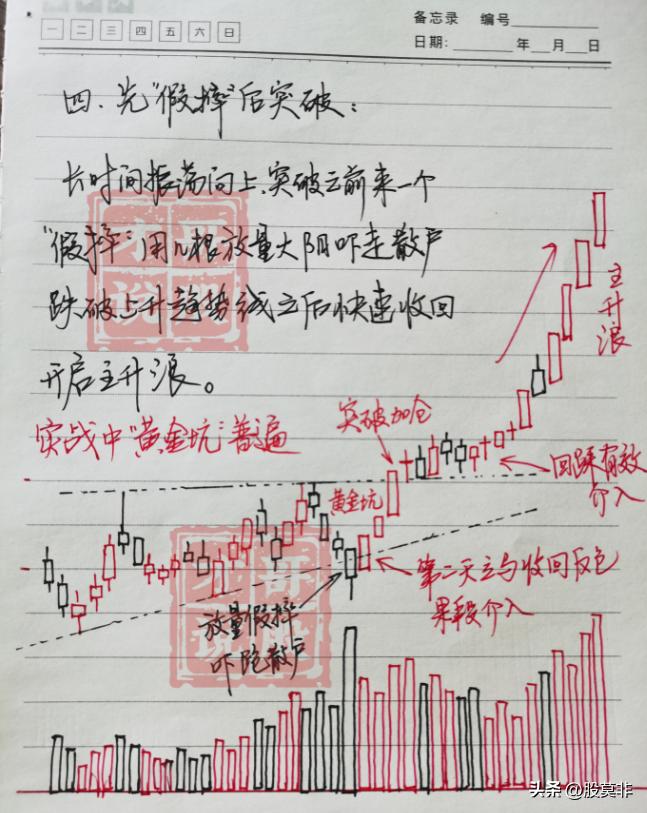 备忘录 编号
一 二 三 四 五 六 日
日期: 年 月 日
四、先“假摔”后突破：
长时间振荡向上、突破之前来一个
“假摔”用几根放量大阴吓走散户
跌破上升趋势线之后快速收回
开启主升浪。
实战中“黄金坑”普遍
主升浪
突破加仓
回踩有效
介入
黄金坑
第二天立马收回反包
果段介入
放量假摔
吓跑散户
头条 @股莫非